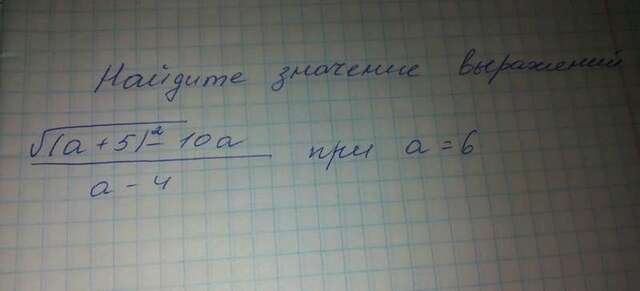 Найдите значение выражений
√(a+5)² - 10a
a - 4
при a = 6